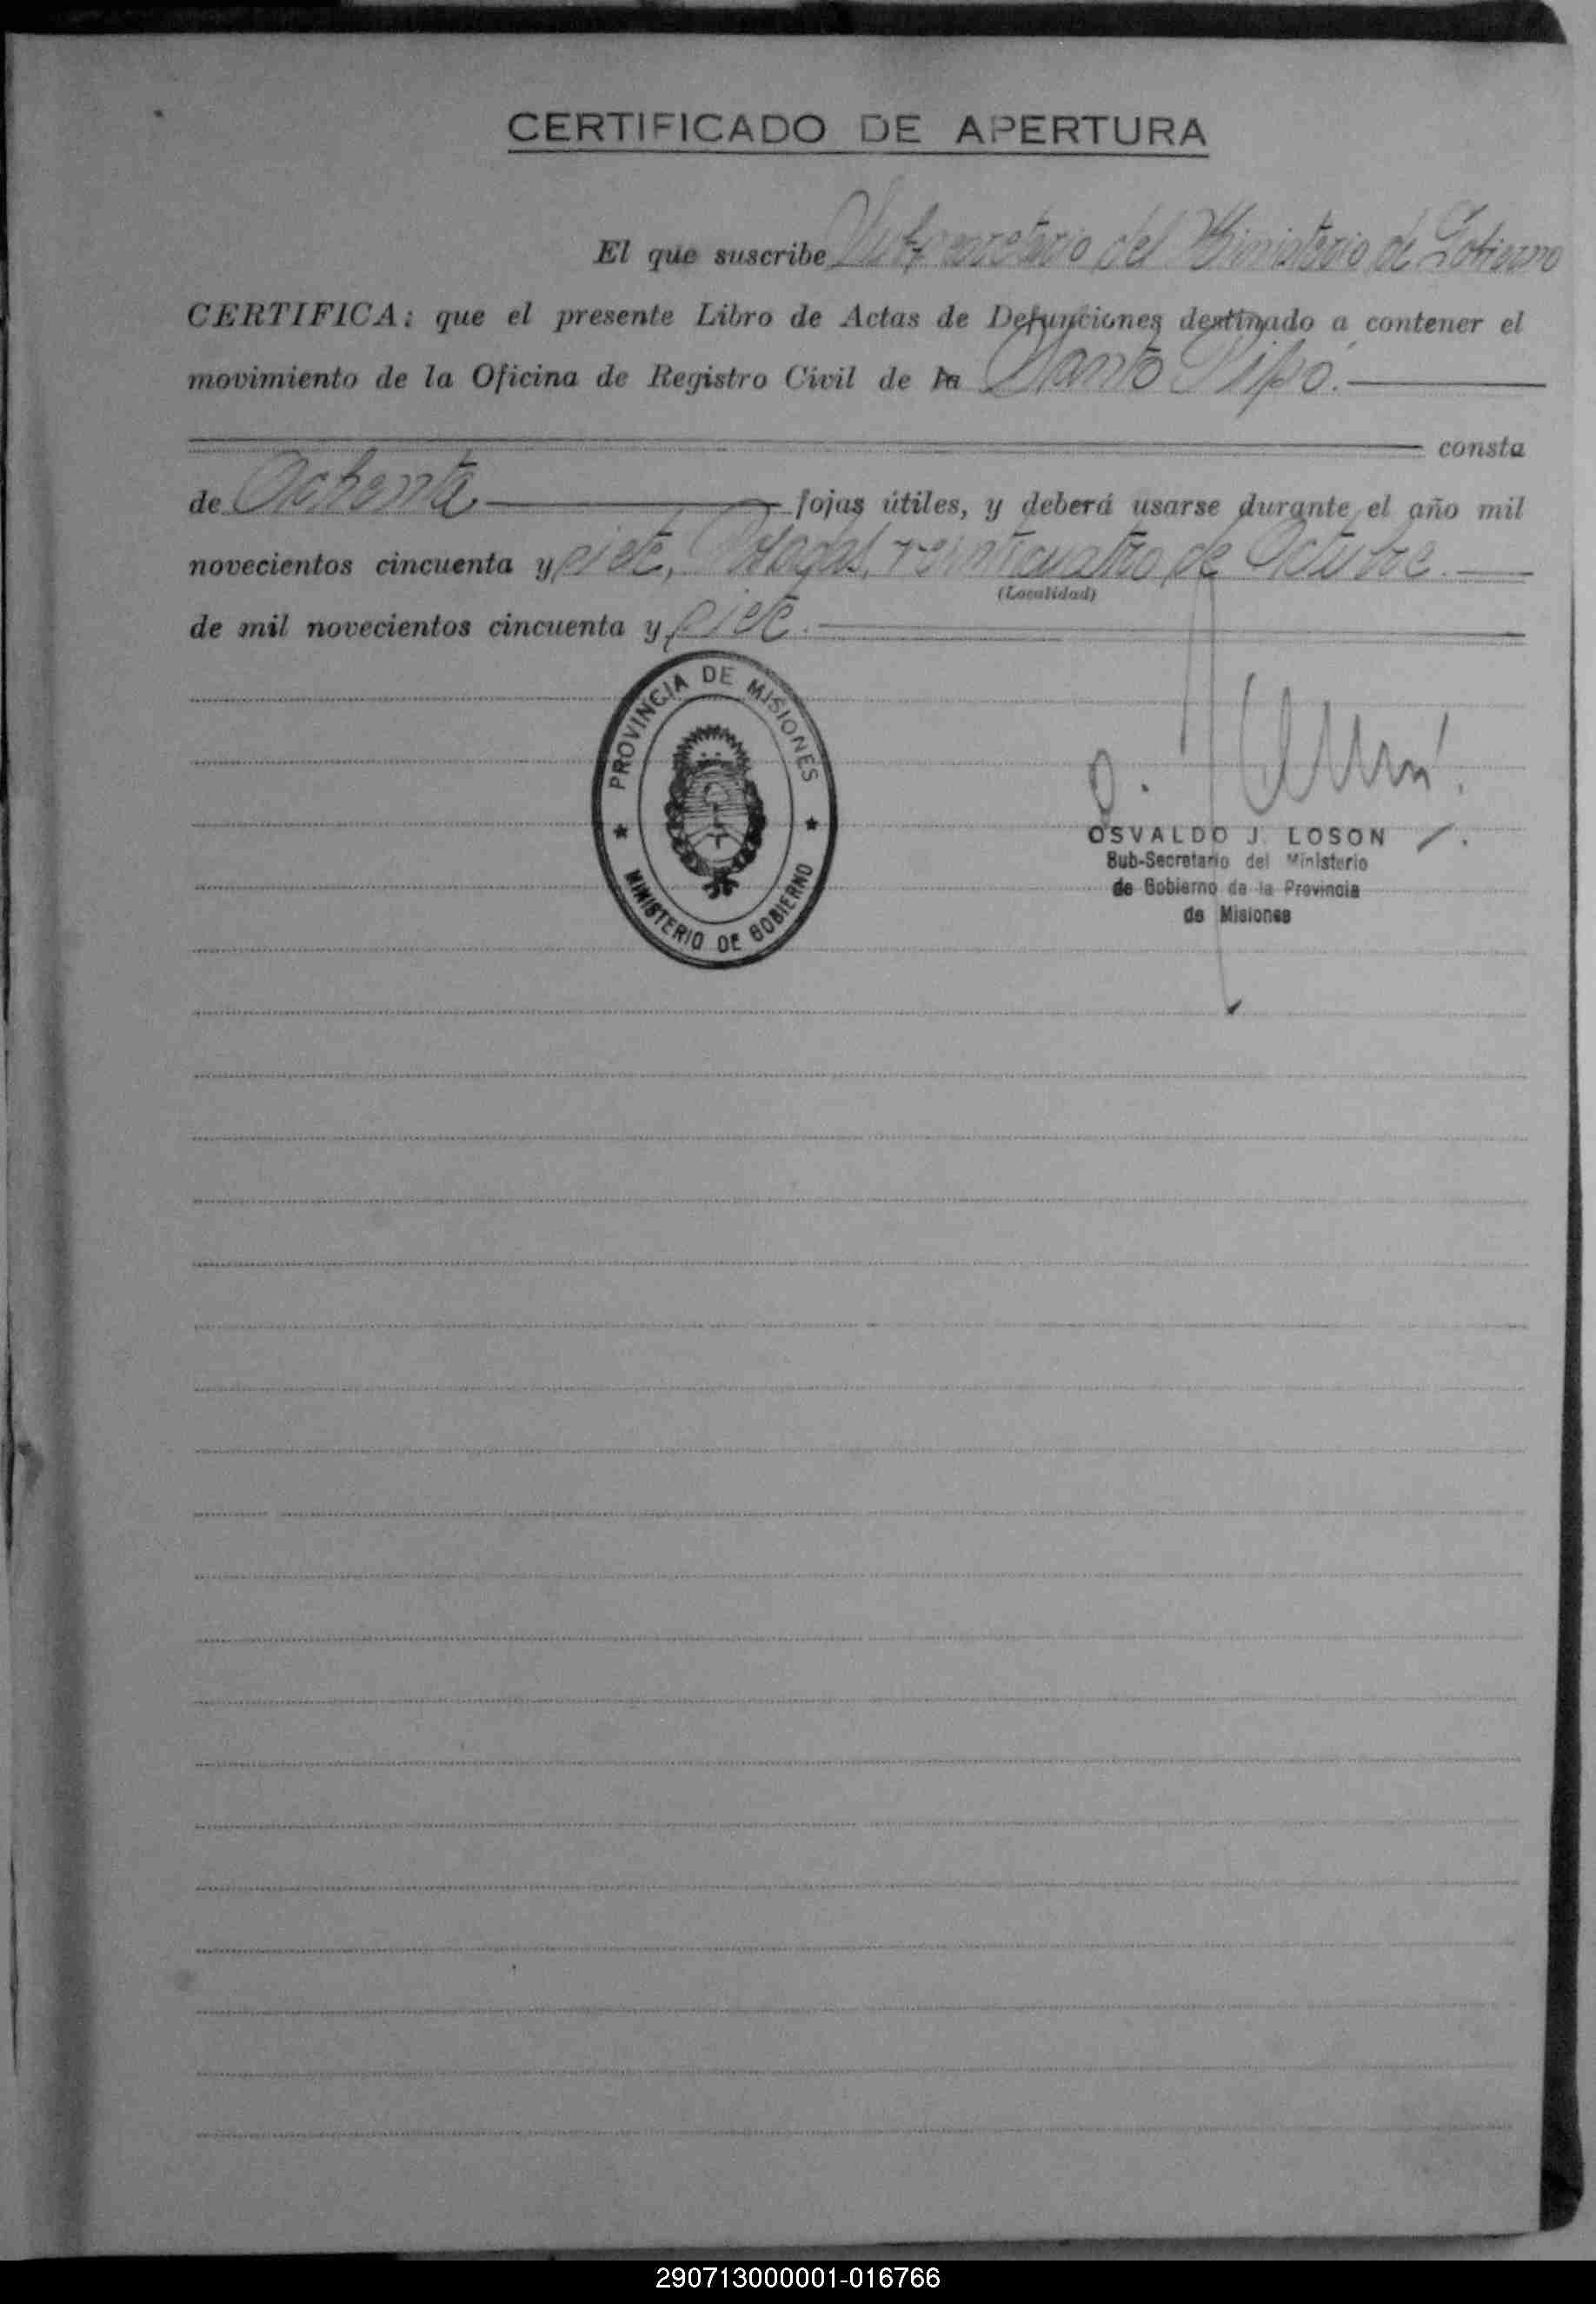 CERTIFICADO DE APERTURA
El que suscribe Subsecretario del Ministerio de Gobierno
CERTIFICA: que el presente Libro de Actas de Defunciones destinado a contener el
movimiento de la Oficina de Registro Civil de la Santo Pipó.
consta
de Ochenta fojas útiles, y deberá usarse durante el año mil
novecientos cincuenta y siete, Posadas, veinticuatro de Octubre
(Localidad)
de mil novecientos cincuenta y siete.
PROVINCIA DE MISIONES
MINISTERIO DE GOBIERNO
OSVALDO J. LOSON
Sub-Secretario del Ministerio
de Gobierno de la Provincia
de Misiones
290713000001-016766